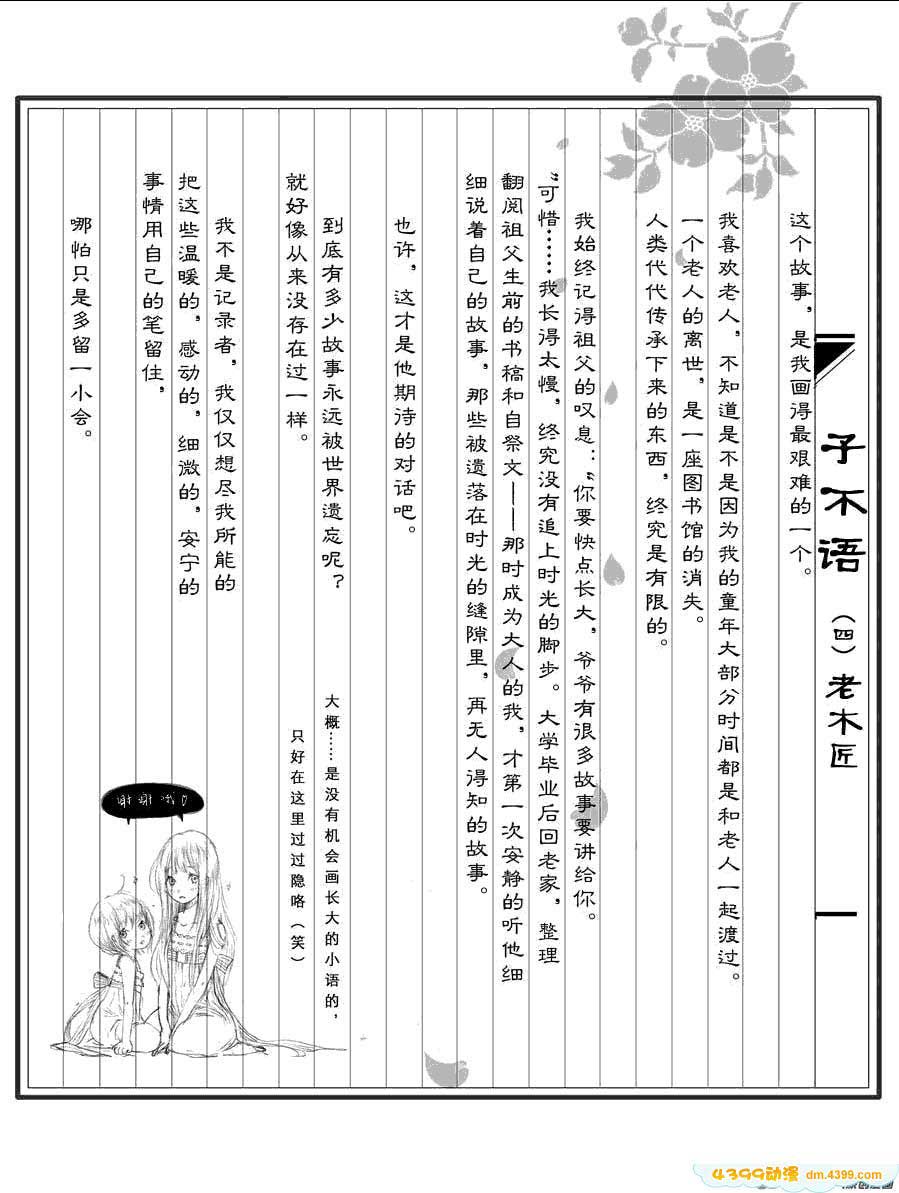 子不语 （四）老木匠
这个故事，是我画得最艰难的一个。
我喜欢老人，不知道是不是因为我的童年大部分时间都是和老人一起渡过。
一个老人的离世，是一座图书馆的消失。
人类代代传承下来的东西，终究是有限的。
我始终记得祖父的叹息：“你要快点长大，爷爷有很多故事要讲给你。
”可惜……我长得太慢，终究没有追上时光的脚步。大学毕业后回老家，整理
翻阅祖父生前的书稿和自祭文——那时成为大人的我，才第一次安静的听他细
细说着自己的故事，那些被遗落在时光的缝隙里，再无人得知的故事。
也许，这才是他期待的对话吧。
到底有多少故事永远被世界遗忘呢？
就好像从来没存在过一样。
我不是记录者，我仅仅想尽我所能的
把这些温暖的，感动的，细微的，安宁的
事情用自己的笔留住，
哪怕只是多留一小会。
大概……是没有机会画长大的小语的，
只好在这里过过隐咯（笑）
谢谢
4399动漫 dm.4399.com